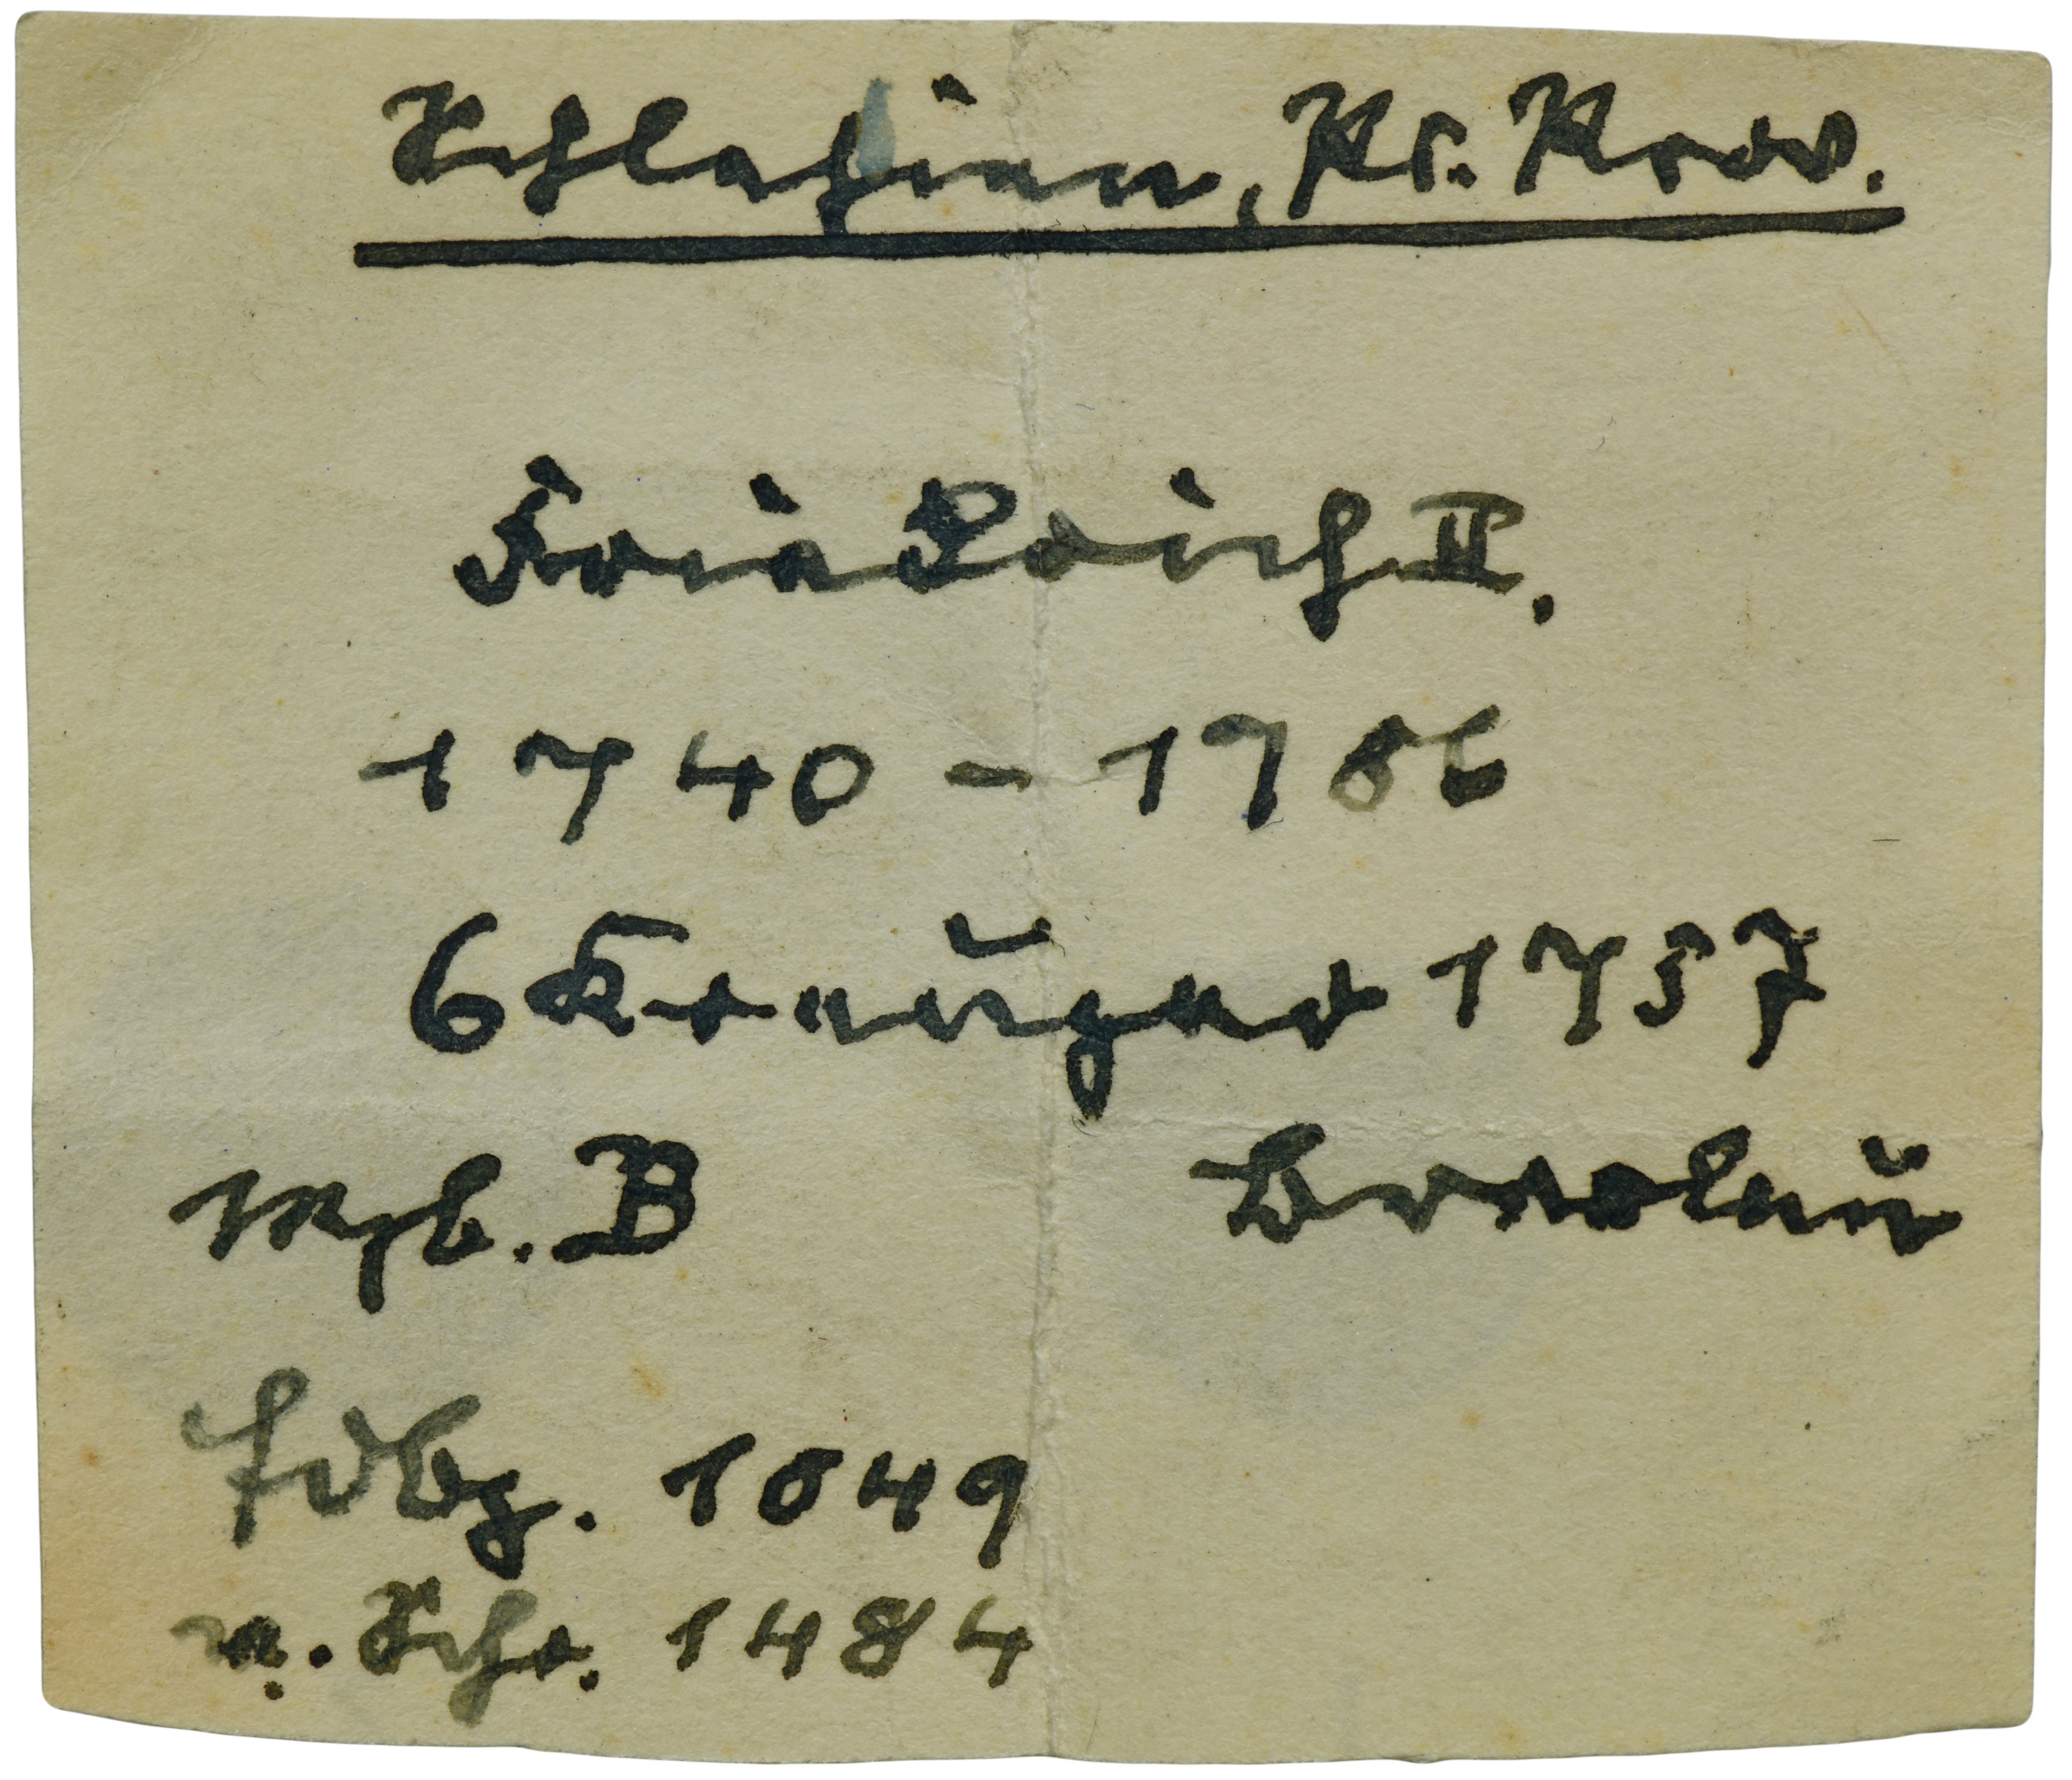 Schlesien, Pr. Prov.
Friedrich II.
1740 - 1786
6 Kreuzer 1757
Mzb. B Breslau
Frdbg. 1049
v. Schr. 1484